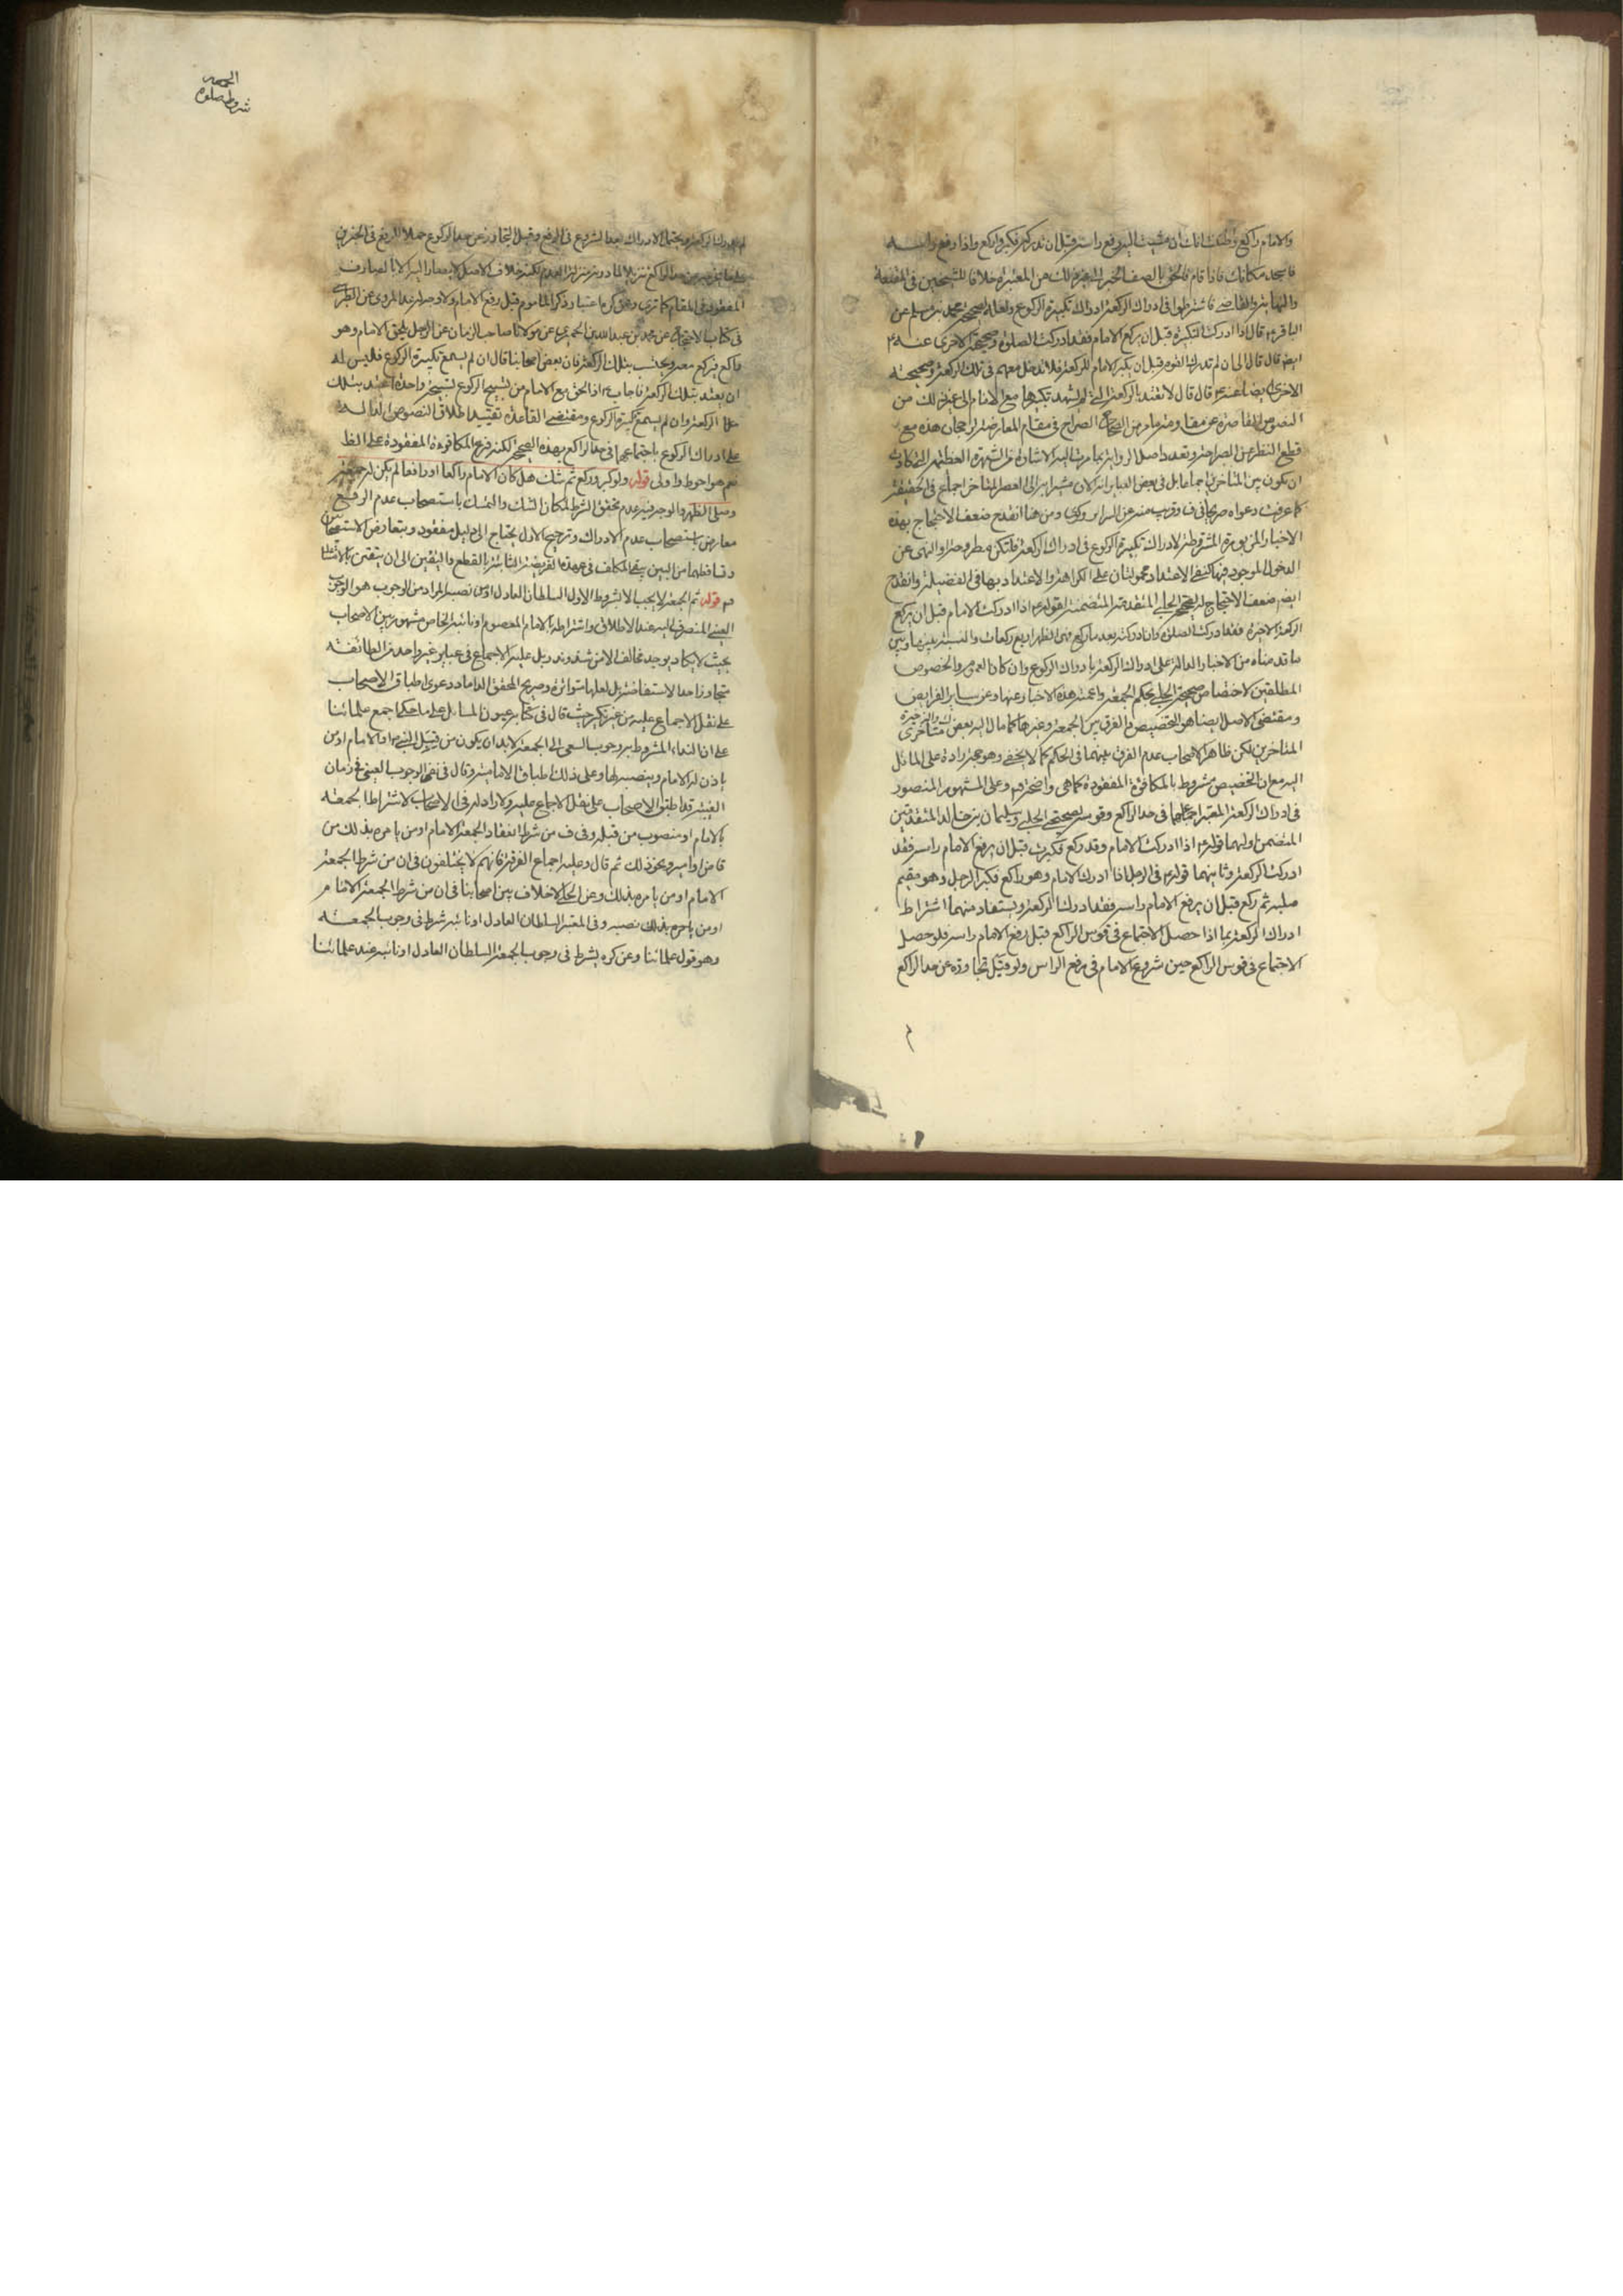 والامام راكع وظننت انك ان مشيت اليه رفع راسه قبل ان تدركه فكبر واركع واذا رفع راسه
فاسجد مكانك فاذا قام فالحق بالصف الخبر الى غير ذلك من المعتبرة خلافا للشيخين في المقنعة
والنهاية والقاضي فاشترطوا في ادراك الركعة ادراك تكبيرة الركوع ولعله لصحيح محمد بن مسلم عن
الباقر ع قال اذا ادركت التكبيرة قبل ان يركع الامام فقد ادركت الصلوة وصحيحته الاخرى عنه ع
ايض قال قال لي ان لم تدرك القوم قبل ان يكبر الامام للركعة فلا تدخل معهم في تلك الركعة وصحيحته
الاخرى ايضا عنه ع قال قال لا تعتد بالركعة التي لم تشهد تكبيرها مع الامام الى غير ذلك من
النصوص القاصرة عن مقاومة ما مر من الصحاح الصراح في مقام المعارضة لرجحان هذه مع
قطع النظر عن الصراحة وتعدد اصل الرواية بما مرت اليه الاشارة من الشهرة العظيمة التي كادت
ان تكون بين المتاخرين اجماعا بل في بعض العباير انه الان مشيرا به الى العصر المتاخر اجماع في الحقيقة
كما عرفت دعواه صريحا في ف وقريب منه عن السراير وكرى ومن هنا انقدح ضعف الاحتجاج بهذه
الاخبار المزبورة المشترطة لادراك تكبيرة الركوع في ادراك الركعة فلتكن مطروحة او النهي عن
الدخول الموجود فيها كنفي الاعتداد محمولتان على الكراهة والاعتداد بها في الفضيلة وانقدح
ايضا ضعف الاحتجاج لهم بصحيح الحلبي المتقدمة المتضمنة لقوله ع اذا ادركت الامام قبل ان يركع
الركعة الاخيرة فقد ادركت الصلوة وان ادركته بعد ما ركع فهي الظهر اربع ركعات والنسبة بينها وبين
ما قدمناه من الاخبار الدالة على ادراك الركعة بادراك الركوع وان كانا العموم والخصوص
المطلقين لاختصاص صحيحة الحلبي بحكم الجمعة واعمية هذه الاخبار عنها وعن ساير الفرايض
ومقتضى الاصل ايضا هو التخصيص والفرق بين الجمعة وغيرها كما مال اليه بعض متاخري
المتاخرين لكن ظاهر الاصحاب عدم الفرق بينهما في الحكم كما لا يخفى وهو حجة رادة على المائل
اليه مع ان التخصيص مشروط بالمكافوة المفقودة كما هي واضحة ثم وعلى المشهور المنصور
في ادراك الركعة المعتبر اجتماعهما في حد الراكع وقوسه لصحيحتي الحلبي وسليمان بن خالد المتقدمتين
المتضمن اولهما قوله ع اذا ادركت الامام وقد ركع فكبرت قبل ان يرفع الامام راسه فقد
ادركت الركعة وثانيهما قوله ع في الرجل اذا ادرك الامام وهو راكع فكبر الرجل وهو مقيم
صلبه ثم ركع قبل ان يرفع الامام راسه فقد ادرك الركعة ويستفاد منهما اشتراط
ادراك الركعة بما اذا حصل الاجتماع في قوس الراكع قبل رفع الامام راسه فلو حصل
الاجتماع في قوس الراكع حين شروع الامام في رفع الراس ولو قبل تجاوزه عن حد الراكع
الجمعه
شروط صلوة
لم يدرك الركعة ويحتمل الادراك بعد الشروع في الرفع وقبل التجاوز عن حد الركوع حملا للرفع في الخبرين
على ما يخرجه من حد الراكع تنزيلا لما دونه منزلة العدم لكنه خلاف الاصل لا يصار اليه الا بالصارف
المفقود في المقام كما ترى وعن كره اعتبار ذكر الماموم قبل رفع الامام ولا وجه له عدا المروي عن الطبرسي
في كتاب الاحتجاج عن محمد بن عبد الله بن الحميري عن مولانا صاحب الزمان عن الرجل يلحق الامام وهو
راكع فيركع معه ويحتسب بتلك الركعة فان بعض اصحابنا قال ان لم يسمع تكبيرة الركوع فليس له
ان يعتد بتلك الركعة فاجاب ع اذا لحق مع الامام من تسبيح الركوع تسبيحة واحدة اعتد بتلك
الركعة وان لم يسمع تكبيرة الركوع ومقتضى القاعدة تقييد اطلاق النصوص الدالة
على ادراك الركوع باجتماعهما في حد الراكع بهذه الصحيحة لكنه فرع المكافوة المفقودة على الظ
نعم هو احوط واولى قوله ولو كبر وركع ثم شك هل كان الامام راكعا او رافعا لم يكن له جمعة
وصلى الظهر والوجه فيه عدم تحقق الشرط لمكان الشك والتمسك باستصحاب عدم الرفع
معارض باستصحاب عدم الادراك وترجيح الاول يحتاج الى دليل مفقود وبتعارض الاستصحابين
وتساقطهما من البين يبقى المكلف في عهدة الفريضة الثابتة بالقطع واليقين الى ان يتيقن بالامتثال
قوله ثم الجمعة لا يجب الا بشروط الاول السلطان العادل او من نصبه المراد من الوجوب هو الوجوب
العيني المنصرف اليه عند الاطلاق واشتراطه بالامام المعصوم او نائبه الخاص مشهور بين الاصحاب
بحيث لا يكاد يوجد مخالف الا من شذ وندر بل عليه الاجماع في عباير غير واحد من الطائفة
متجاوزا حد الاستفاضة بل لعلها متواترة وصريح المحقق الداماد دعوى اطباق الاصحاب
على نقل الاجماع عليه من غير نكير حيث قال في كتابه عيون المسائل على ما حكي اجمع علمائنا
على ان النداء المشروط به وجوب السعي الى الجمعة لابد ان يكون من قبيل النبي ص او الامام او من
ياذن له الامام وينصبه لها وعلى ذلك اطباق الامامية وقال في نفي الوجوب العيني في زمان
الغيبة قد اطبق الاصحاب على نقل الاجماع عليه ولا راد له في الاصحاب لاشتراط الجمعة
بالامام او منصوب من قبله وفي ف من شرط انعقاد الجمعة الامام او من يامره بذلك من
قاض او امير ونحو ذلك ثم قال وعليه اجماع الفرقة فانهم لا يختلفون في ان من شرط الجمعة
الامام او من يامره بذلك وعن الحلي لا خلاف بين اصحابنا في ان من شرط الجمعة الامام
او من يامره بذلك نصبه وفي المعتبر السلطان العادل او نائبه شرط في وجوب الجمعة
وهو قول علمائنا وعن كره يشترط في وجوب الجمعة السلطان العادل او نائبه عند علمائنا